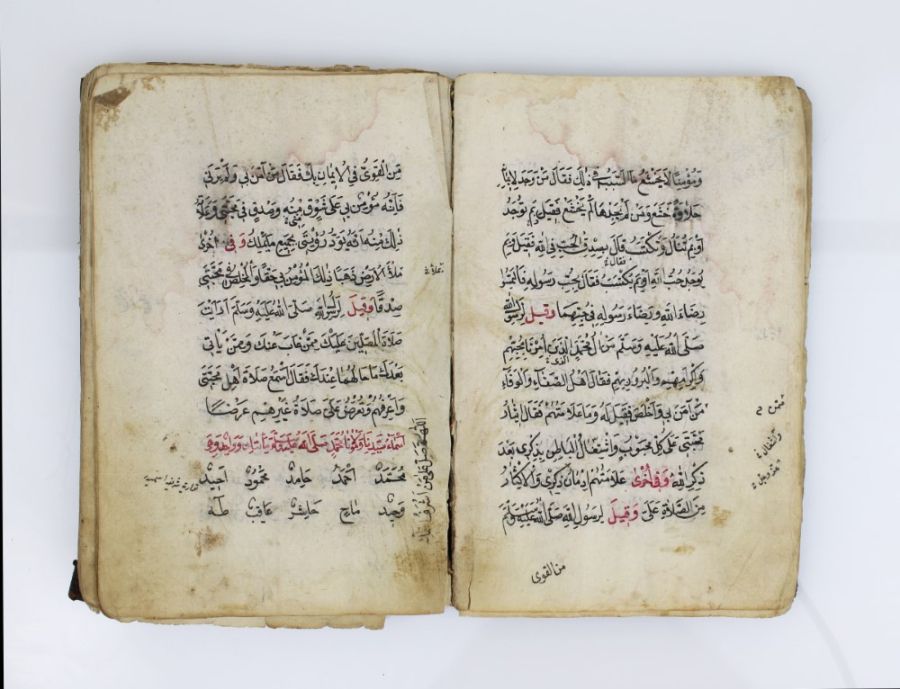 وَمُؤْمِنًا لَا يَخْشَعُ مَا السَّبَبُ فِي ذٰلِكَ فَقَالَ مَنْ وَجَدَ لِإِيمَانِهِ
حَلَاوَةً خَشَعَ وَمَنْ لَمْ يَجِدْهَا لَمْ يَخْشَعْ فَقِيلَ بِمَ تُوجَدُ
أَوْ بِمَ تُنَالُ وَتُكْتَسَبُ قَالَ بِصِدْقِ الْحُبِّ فِي اللهِ فَقِيلَ وَبِمَ
فقال
يُوجَدُ حُبُّ اللهِ أَوْ بِمَ يُكْتَسَبُ فَقَالَ بِحُبِّ رَسُولِهِ فَالْتَمِسُوا
رِضَاءَ اللهِ وَرِضَاءَ رَسُولِهِ فِي حُبِّهِمَا وَقِيلَ لِرَسُولِ اللهِ
صَلَّى اللهُ عَلَيْهِ وَسَلَّمَ مَنْ آلُ مُحَمَّدٍ الَّذِينَ أُمِرْنَا بِحُبِّهِمْ
وَإِكْرَامِهِمْ وَالْبُرُورِ بِهِمْ فَقَالَ أَهْلُ الصَّفَاءِ وَالْوَفَاءِ
مَنْ آمَنَ بِي وَأَخْلَصَ فَقِيلَ لَهُ وَمَا عَلَامَاتُهُمْ فَقَالَ إِيثَارُ
مَحَبَّتِي عَلَى كُلِّ مَحْبُوبٍ وَاشْتِغَالُ الْبَاطِنِ بِذِكْرِي بَعْدَ
ذِكْرِ اللهِ وَفِي أُخْرَى عَلَامَتُهُمْ إِدْمَانُ ذِكْرِي وَالْإِكْثَارُ
مِنَ الصَّلَاةِ عَلَيَّ وَقِيلَ لِرَسُولِ اللهِ صَلَّى اللهُ عَلَيْهِ وَسَلَّمَ
من القوى
مَنِ الْقَوِيُّ فِي الْإِيمَانِ بِكَ فَقَالَ مَنْ آمَنَ بِي وَلَمْ يَرَنِي
فَإِنَّهُ مُؤْمِنٌ بِي عَلَى شَوْقٍ مِنْهُ وَصِدْقٍ فِي مَحَبَّتِي وَعَلَامَةُ
ذٰلِكَ مِنْهُ أَنَّهُ يَوَدُّ رُؤْيَتِي بِجَمِيعِ مَا يَمْلِكُ وَفِي أُخْرَى
مِلْءَ الْأَرْضِ ذَهَبًا ذٰلِكَ الْمُؤْمِنُ بِي حَقًّا وَالْمُخْلِصُ فِي مَحَبَّتِي
صِدْقًا وَقِيلَ لِرَسُولِ اللهِ صَلَّى اللهُ عَلَيْهِ وَسَلَّمَ أَرَأَيْتَ
صَلَاةَ الْمُصَلِّينَ عَلَيْكَ مِمَّنْ غَابَ عَنْكَ وَمِمَّنْ يَأْتِي
بَعْدَكَ مَا حَالُهُمَا عِنْدَكَ فَقَالَ أَسْمَعُ صَلَاةَ أَهْلِ مَحَبَّتِي
وَأَعْرِفُهُمْ وَتُعْرَضُ عَلَيَّ صَلَاةُ غَيْرِهِمْ عَرْضًا
أَسْمَاءُ سَيِّدِنَا وَمَوْلَانَا مُحَمَّدٍ صَلَّى اللهُ عَلَيْهِ
مُحَمَّدٌ أَحْمَدُ حَامِدٌ مَحْمُودٌ أَحِيدٌ
وَحِيدٌ مَاحٍ حَاشِرٌ عَاقِبٌ طٰهٰ